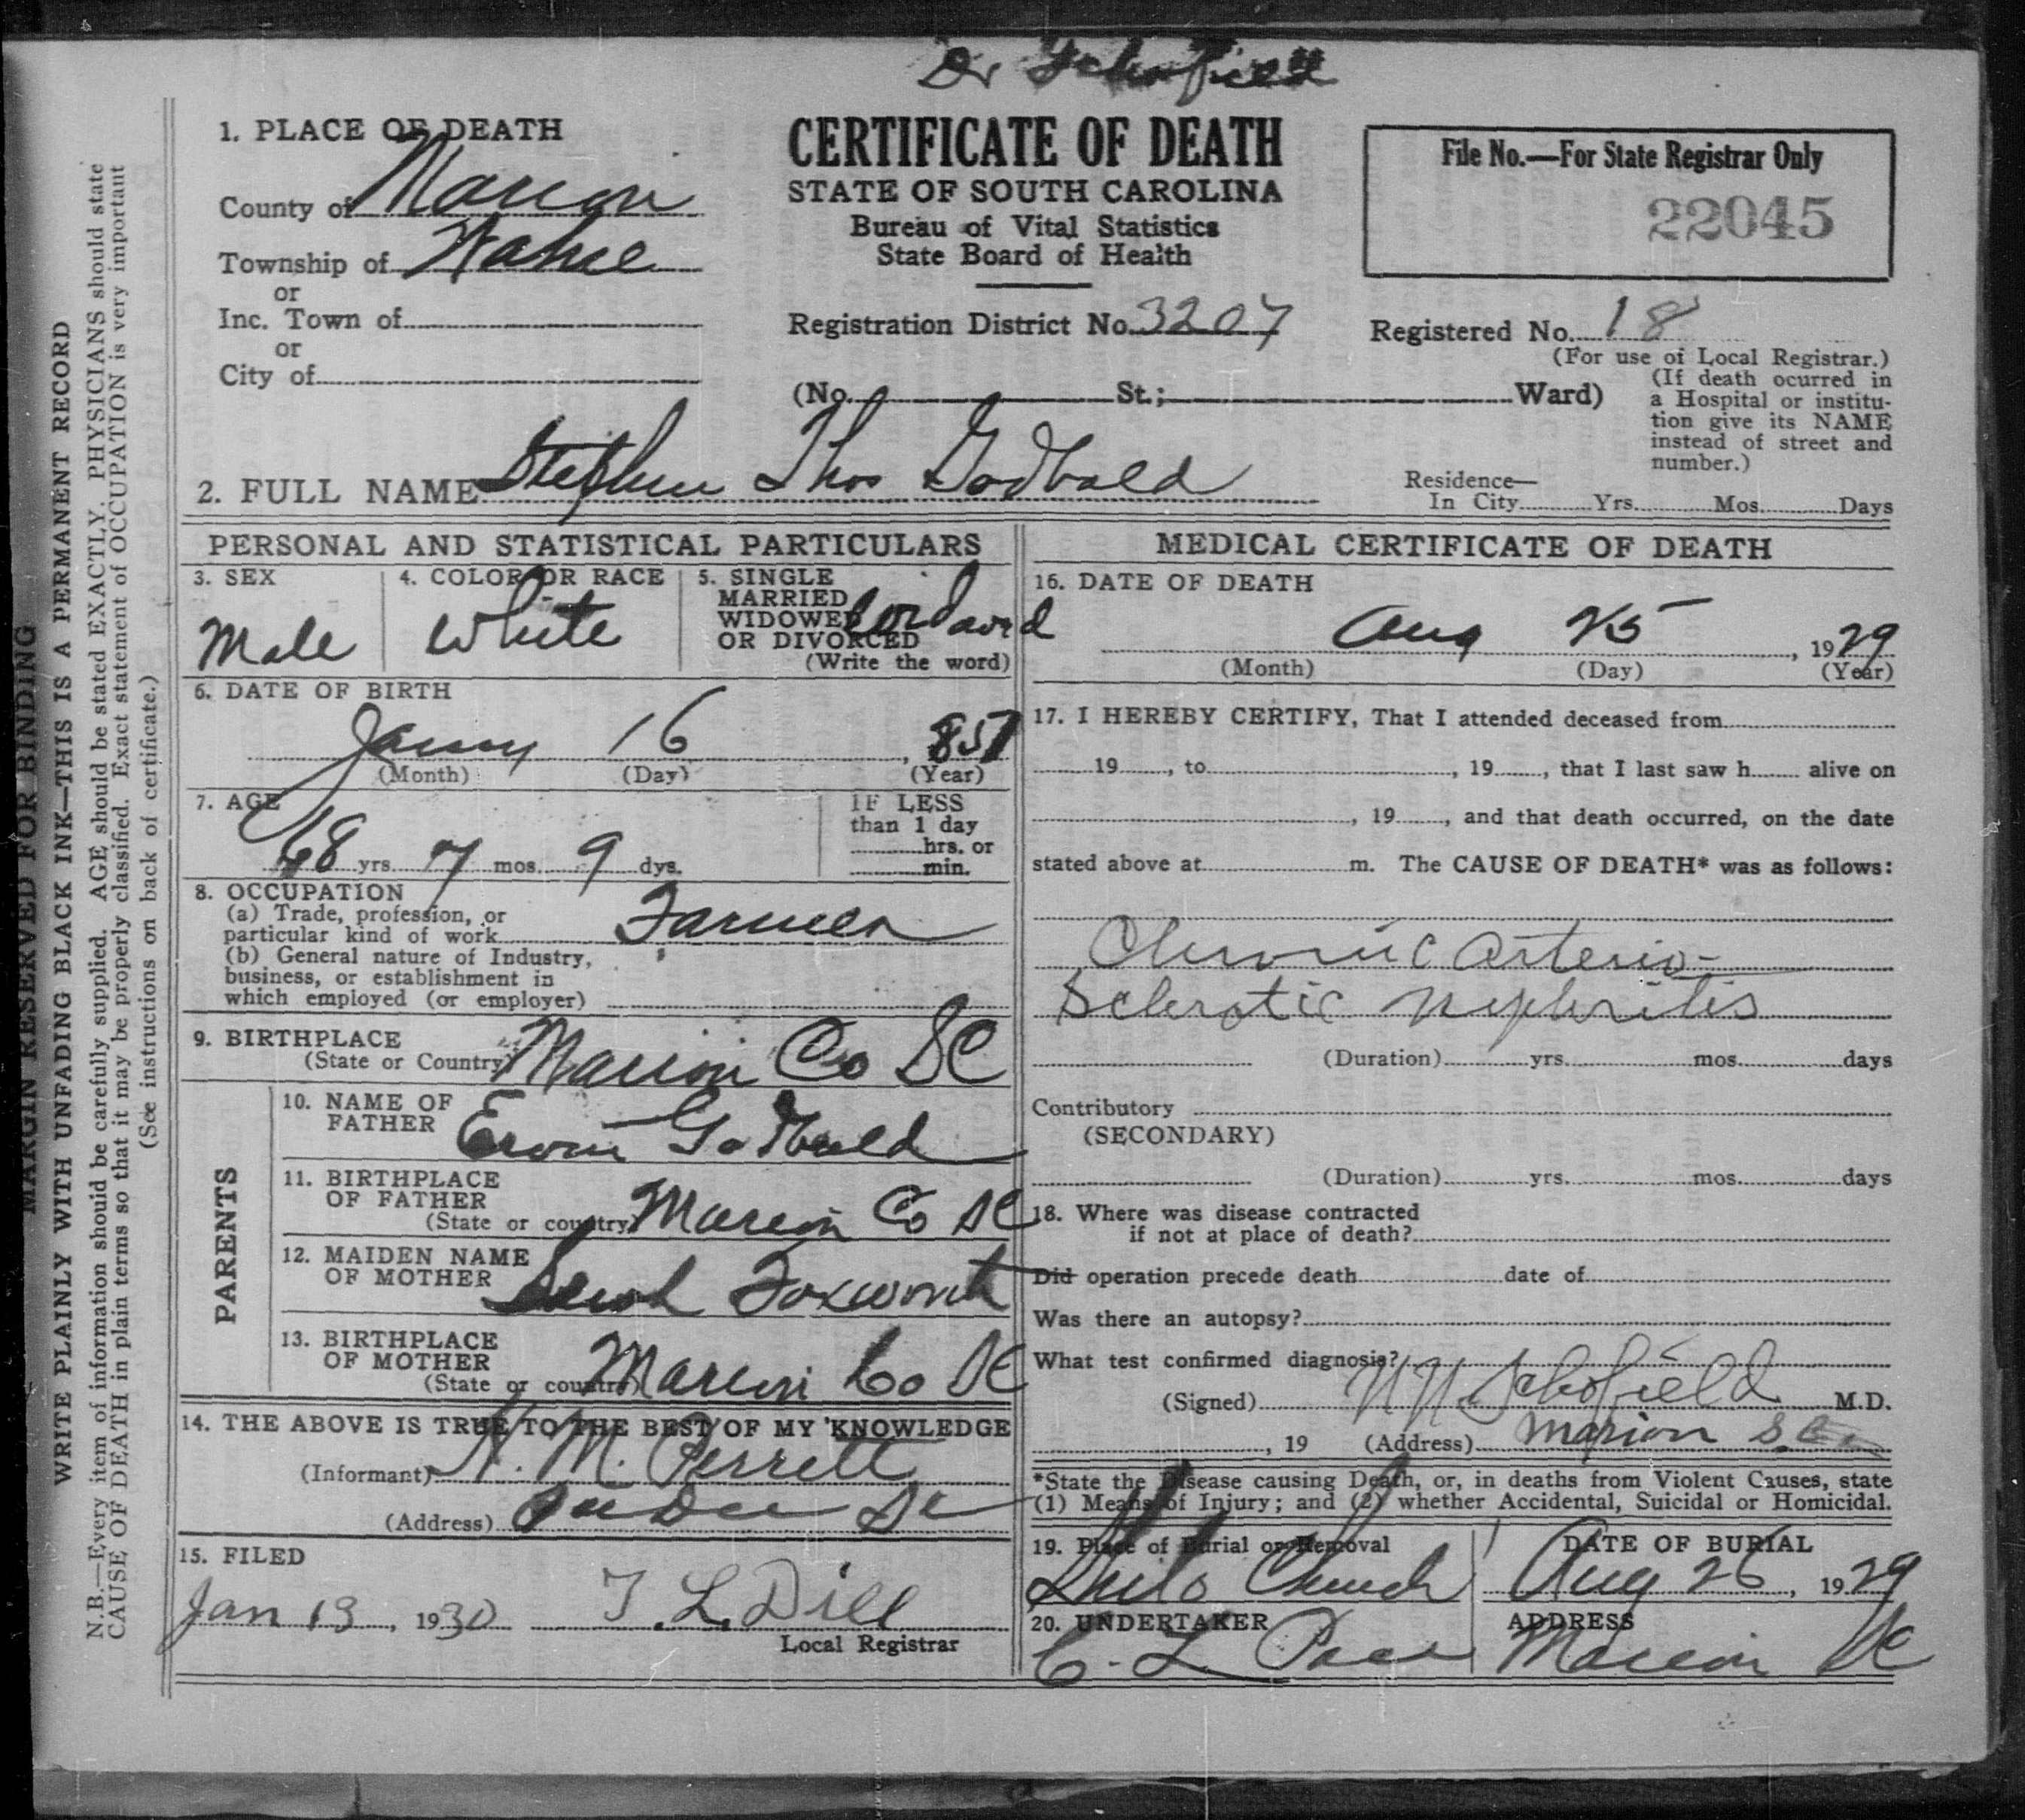 Dr Schofield
1. PLACE OF DEATH
County of Marion
Township of Wahee
or
Inc. Town of
or
City of
CERTIFICATE OF DEATH
STATE OF SOUTH CAROLINA
Bureau of Vital Statistics
State Board of Health
Registration District No. 3207
(No. St.; Ward)
File No.—For State Registrar Only
22045
Registered No. 18
(For use of Local Registrar.)
(If death ocurred in
a Hospital or institu-
tion give its NAME
instead of street and
number.)
2. FULL NAME Stephen Thos Godbold
Residence—
In City Yrs. Mos. Days
PERSONAL AND STATISTICAL PARTICULARS
3. SEX
Male
4. COLOR OR RACE
White
5. SINGLE
MARRIED
WIDOWED
OR DIVORCED
(Write the word)
6. DATE OF BIRTH
16
(Month) (Day) (Year)
7. AGE
68 yrs. 7 mos. 9 dys.
IF LESS
than 1 day
hrs. or
min.
8. OCCUPATION
(a) Trade, profession, or
particular kind of work Farmer
(b) General nature of Industry,
business, or establishment in
which employed (or employer)
9. BIRTHPLACE
(State or Country) Marion Co SC
PARENTS
10. NAME OF
FATHER Ervin Godbold
11. BIRTHPLACE
OF FATHER
(State or country) Marion Co SC
12. MAIDEN NAME
OF MOTHER Sarah Foxworth
13. BIRTHPLACE
OF MOTHER
(State or country) Marion Co SC
14. THE ABOVE IS TRUE TO THE BEST OF MY KNOWLEDGE
(Informant) H. M. Perrett
(Address) Pee Dee SC
15. FILED
Jan 13, 1930 T. L. Dill
Local Registrar
MEDICAL CERTIFICATE OF DEATH
16. DATE OF DEATH
Aug 25, 1929
(Month) (Day) (Year)
17. I HEREBY CERTIFY, That I attended deceased from
19 , to , 19 , that I last saw h alive on
, 19 , and that death occurred, on the date
stated above at m. The CAUSE OF DEATH* was as follows:
Chronic arterio-
Sclerotic nephritis
(Duration) yrs. mos. days
Contributory
(SECONDARY)
(Duration) yrs. mos. days
18. Where was disease contracted
if not at place of death?
Did operation precede death date of
Was there an autopsy?
What test confirmed diagnosis?
(Signed) Schofield M.D.
, 19 (Address) Marion S.C.
*State the Disease causing Death, or, in deaths from Violent Causes, state
(1) Means of Injury; and (2) whether Accidental, Suicidal or Homicidal.
19. Place of Burial or Removal
Church
DATE OF BURIAL
Aug 26, 1929
20. UNDERTAKER
C. L. Pace
ADDRESS
Marion SC
MARGIN RESERVED FOR BINDING
WRITE PLAINLY WITH UNFADING BLACK INK—THIS IS A PERMANENT RECORD
N.B.—Every item of information should be carefully supplied. AGE should be stated EXACTLY. PHYSICIANS should state
CAUSE OF DEATH in plain terms so that it may be properly classified. Exact statement of OCCUPATION is very important
(See instructions on back of certificate.)